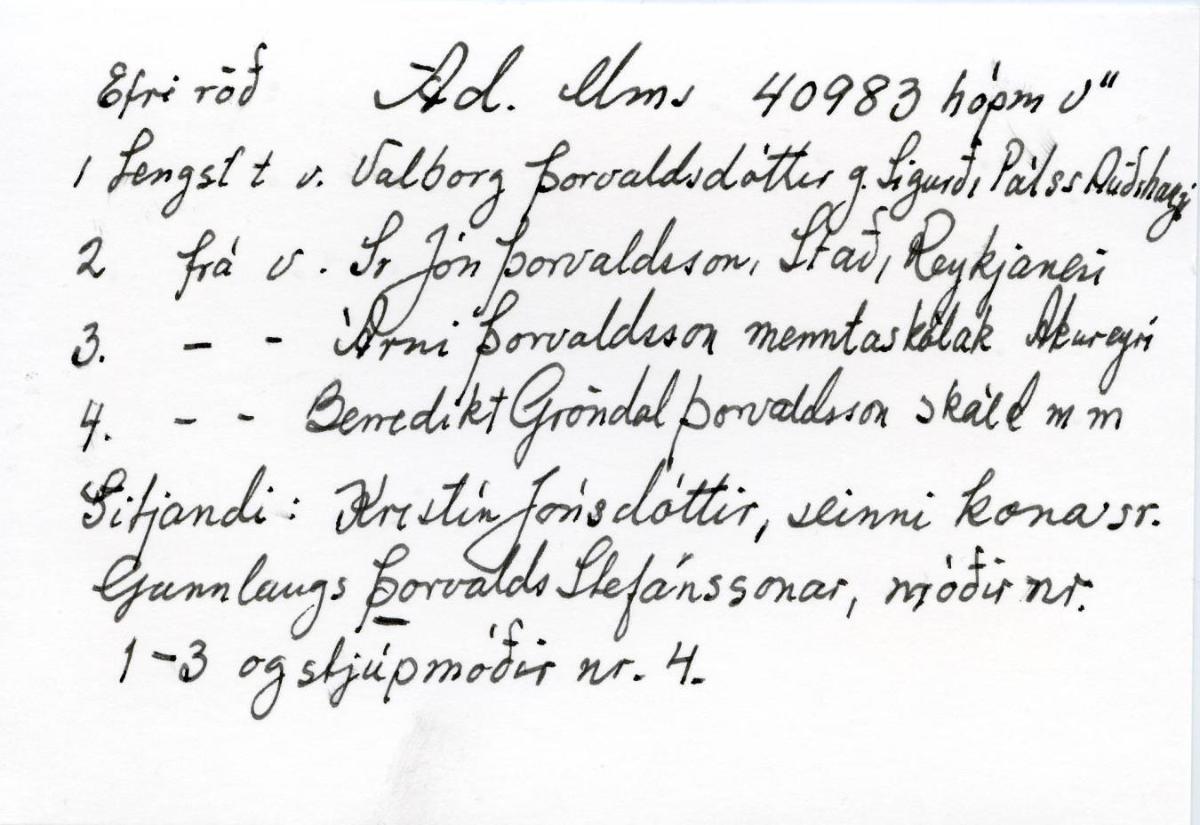 Efri röð Ad. Mms 40983 hópm v"
1 Lengst t v. Valborg Þorvaldsdóttir g. Sigurði Pálss Auðshaugi
2 frá v. Sr Jón Þorvaldsson, Stað, Reykjanesi
3. - - Árni Þorvaldsson menntaskólak Akureyri
4. - - Benedikt Gröndal Þorvaldsson skáld m m
Sitjandi: Kristín Jónsdóttir, seinni kona sr.
Gunnlaugs Þorvalds Stefánssonar, móðir nr.
1-3 og stjúpmóðir nr. 4.